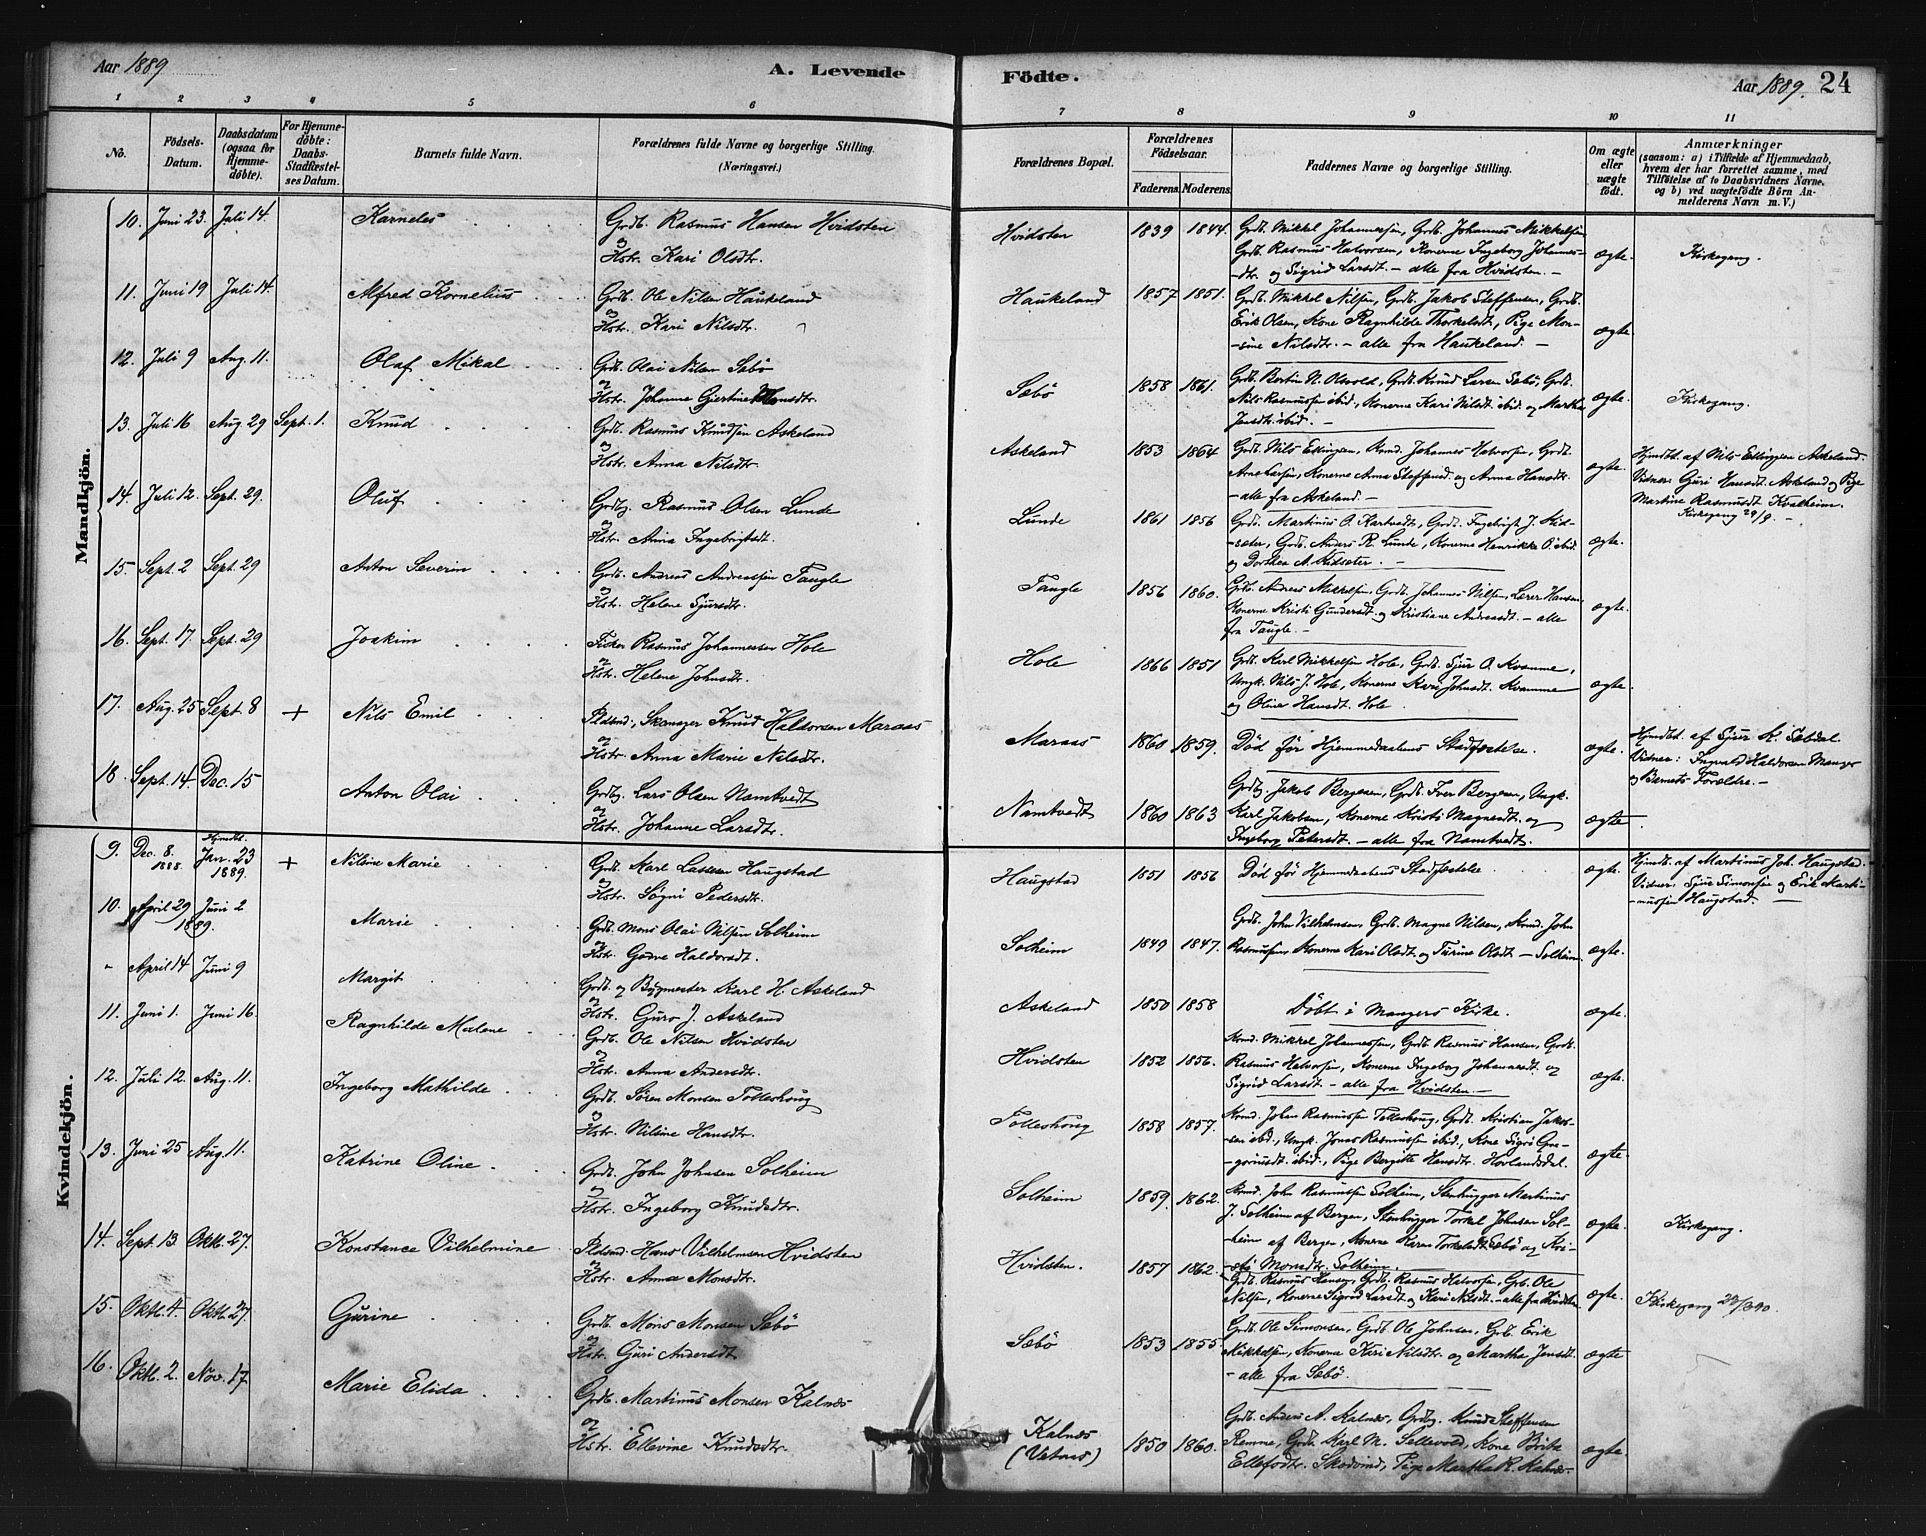 Aar 1889
A. Levende
Födte.
Aar 1889. 24
1 2 3 4 5 6 7 8 9 10 11
No.
Födsels-
Datum.
Daabsdatum
(ogsaa for
Hjemme-
döbte).
For Hjemme-
döbte:
Daabs-
Stadfæstel-
ses Datum.
Barnets fulde Navn.
Forældrenes fulde Navne og borgerlige Stilling.
(Næringsvei.)
Forældrenes Bopæl.
Forældrenes
Födselsaar.
Faderens. Moderens.
Faddernes Navne og borgerlige Stilling.
Om ægte
eller
uægte
födt.
Anmærkninger
(saasom: a) i Tilfælde af Hjemmedaab,
hvem der har forrettet samme, med
Tilføielse af to Daabsvidners Navne,
og b) ved uægtefödte Börn An-
melderens Navn m. V.)
Mandkjön.
10. Juni 23. Juli 14. Karneles
Grdb. Rasmus Hansen Hvidsten
og
Hstr. Kari Olsdtr.
Hvidsten 1839 1844.
Grdb. Mikkel Johannessen, Grdb. Johannes Mikkelsen
Grdb. Rasmus Halvorsen, Konerne Ingeborg Johannes-
-dtr. og Sigrid Larsdt. - alle fra Hvidsten. -
ægte. Kirkegang.
11. Juni 19 Juli 14. Alfred Kornelius
Grdb. Ole Nilsen Haukeland
og
Hstr. Kari Nilsdtr.
Haukeland 1857 1851.
Grdb. Mikkel Nilsen, Grdb. Jakob Steffensen, Grdb.
Erik Olsen, Kone Ragnhilde Thorkelsdt., Pige Mon-
-sine Nilsdtr. - alle fra Haukeland. -
ægte
12. Juli 9 Aug. 11. Olaf Mikal
Grdb. Olai Nilsen Sebö
og
Hstr. Johanne Gjertine Monsdtr.
Sæbö 1858 1861.
Grdb. Bertin N. Olsvold, Grdb. Knud Larsen Sæbö, Grdb.
Nils Rasmussen ibid., Konerne Kari Nilsdt. ibid. og Martha
Jensdtr. ibid. -
ægte. Kirkegang.
13. Juli 16 Aug 29 Sept. 1. Knud
Grdb. Rasmus Knudsen Askeland
og
Hstr. Anna Nilsdtr.
Askeland 1853 1864
Grdb. Nils Ellingsen, Kmd. Johannes Halvorsen, Grdb.
Arne Larsen, Konerne Anna Steffensd. og Anna Hansdtr.
- alle fra Askeland. -
ægte.
Hjmdbt. af Nils Ellingsen Askeland.
Vidner: Guri Hansdt. Askeland og Pige
Martine Rasmusdt. Kvalheim.
Kirkegang 29/9. -
14. Juli 12. Sept. 29. Oluf
Grdbg. Rasmus Olsen Lunde
og
Hstr. Anna Ingebrigtsdt.
Lunde 1861 1856
Grdb. Martinus O. Kartvedt, Grdb. Ingebrigt J. Kid-
-sæter, Grdb. Anders R. Lunde, Konerne Henrikke O. ibid.
og Dorthea A. Kidsæter. -
ægte.
15. Sept. 2 Sept. 29 Anton Severin
Grdb. Andreas Andreassen Taugle
og
Hstr. Helene Sjursdtr.
Taugle 1856 1860.
Grdb. Andreas Mikkelsen, Grdb. Johannes Nilsen, Lærer Hansen
Konerne Kristi Gundersdt. og Kristiane Andreasdt. - alle
fra Taugle. -
ægte.
16. Sept. 17. Sept. 29 Joakim
Fisker Rasmus Johannessen Hole
og
Hstr. Helene Johnsdtr.
Hole 1866 1851
Grdb. Karl Mikkelsen Hole, Grdb. Sjur O. Kvamme,
Ungk. Nils J. Hole, Konerne Kari Johnsdt. Kvamme
og Oline Hansdt. Hole.
ægte.
17. Aug. 25 Sept. 8 + Nils Emil
Pldsmd., Skomager Knud Haldorsen Maraas
og
Hstr. Anna Marie Nilsdtr.
Maraas 1860 1859.
Død før Hjemmedaabens Stadfæstelse.
ægte.
Hjmdbt. af Sjur K. Sæbdal
Vidner: Ingvald Haldorsen Manger
og Barnets Forældre. -
18. Sept. 14. Dec. 15 Anton Olai
Grdbg. Lars Olsen Namtvedt
og
Hstr. Johanne Larsdtr.
Namtvedt 1860 1863
Grdbg. Jakob Bergesen, Grdb. Iver Bergesen, Ungk.
Karl Jakobsen, Konerne Kristi Magnesdt. og
Ingeborg Petersdt. - alle fra Namtvedt.
ægte
Kvindekjön.
9. Dec. 8.
1888.
Hjmdbt.
Jan. 23
1889.
+ Nilsine Marie
Grdb. Karl Lassesen Haugstad
og
Hstr. Søgni Pedersdt.
Haugstad 1851 1856
Død før Hjemmedaabens Stadfæstelse.
ægte.
Hjmdb. af Martinus Joh. Haugstad.
Vidner: Sjur Simonsen og Erik Marti-
-nussen Haugstad. -
10. April 29 Juni 2
1889.
Marie
Grdb. Mons Olai Nilsen Solheim
og
Hstr. Gødve Haldorsdt.
Solheim 1849 1847.
Grdb. John Vilhelmsen Grdb. Magne Nilsen, Kmd. John
Rasmussen, Konerne Kari Olsdt. og Turine Olsdt - Solheim.
ægte.
" April 14 Juni 9 Margit
Grdb. og Bygmester Karl H. Askeland
og
Hstr. Guro J. Askeland
Askeland 1850 1858
Döbt i Mangers Kirke.
ægte.
11. Juni 1. Juni 16. Ragnhilde Malene
Grdb. Ole Nilsen Hvidsten
og
Hstr. Anna Andersdtr.
Hvidsten 1852 1856.
Kmd. Mikkel Johannessen, Grdb. Rasmus Hansen, Grdb.
Rasmus Halvorsen, Konerne Ingeborg Johannesdt. og
Sigrid Larsdt. - alle fra Hvidsten. -
ægte.
12. Juli 12. Aug. 11. Ingeborg Mathilde
Grdb. Søren Monsen Tolleshoug
og
Hstr. Nilsine Hansdtr.
Tolleshoug 1858 1857.
Kmd. Johan Rasmussen Tolleshoug, Grdb. Kristian Jakob-
-sen ibid., Ungk. Jonas Rasmussen ibid., Kone Sigri Gre-
-goriusdt. ibid., Pige Bergitte Hansdtr. Hovlandsdal.
ægte.
13. Juni 25 Aug. 11. Katrine Oline
Grdb. John Johnsen Solheim
og
Hstr. Ingeborg Knudsdtr.
Solheim 1859. 1862.
Kmd. John Rasmussen Solheim, Stenhugger Martinus
J. Solheim af Bergen, Stenhugger Torkel Johnsen Sol-
-heim af Bergen, Konerne Karen Torkelsdt. Sæbö og Kri-
-sti Monsdtr. Solheim.
ægte. Kirkegang.
14. Sept. 13. Okt. 27. Konstance Vilhelmine
Pldsmd. Hans Vilhelmsen Hvidsten
og
Hstr. Anna Monsdtr.
Hvidsten. 1857 1862.
Grdb. Rasmus Hansen, Grdb. Rasmus Halvorsen, Grb. Ole
Nilsen, Konerne Sigrid Larsdt. og Kari Nilsdt. - alle fra Hvidsten
ægte. Kirkegang 23/3 90.
15. Oktb. 4. Oktb. 27. Gurine
Grdb. Mons Monsen Sæbö
og
Hstr. Guri Andersdt.
Sæbö 1853 1855.
Grdb. Ole Simonsen, Grdb. Ole Johnsen, Grb. Erik
Mikkelsen, Konerne Kari Nilsdtr. og Martha Jensdt.
- alle fra Sæbö.
ægte
16. Oktb. 2. Nov. 17. Marie Elida
Grdb. Martinus Monsen Kalnæs
og
Hstr. Ellevine Knudsdtr.
Kalnæs
(Vetaas) 1850 1860.
Grdb. Anders A. Kalnæs, Grdbg. Knud Steffensen
Remme, Grdb. Karl M. Sellevold, Kone Brita
Ellefsdtr. Skodvind, Pige Martha R. Kalnæs.
ægte.